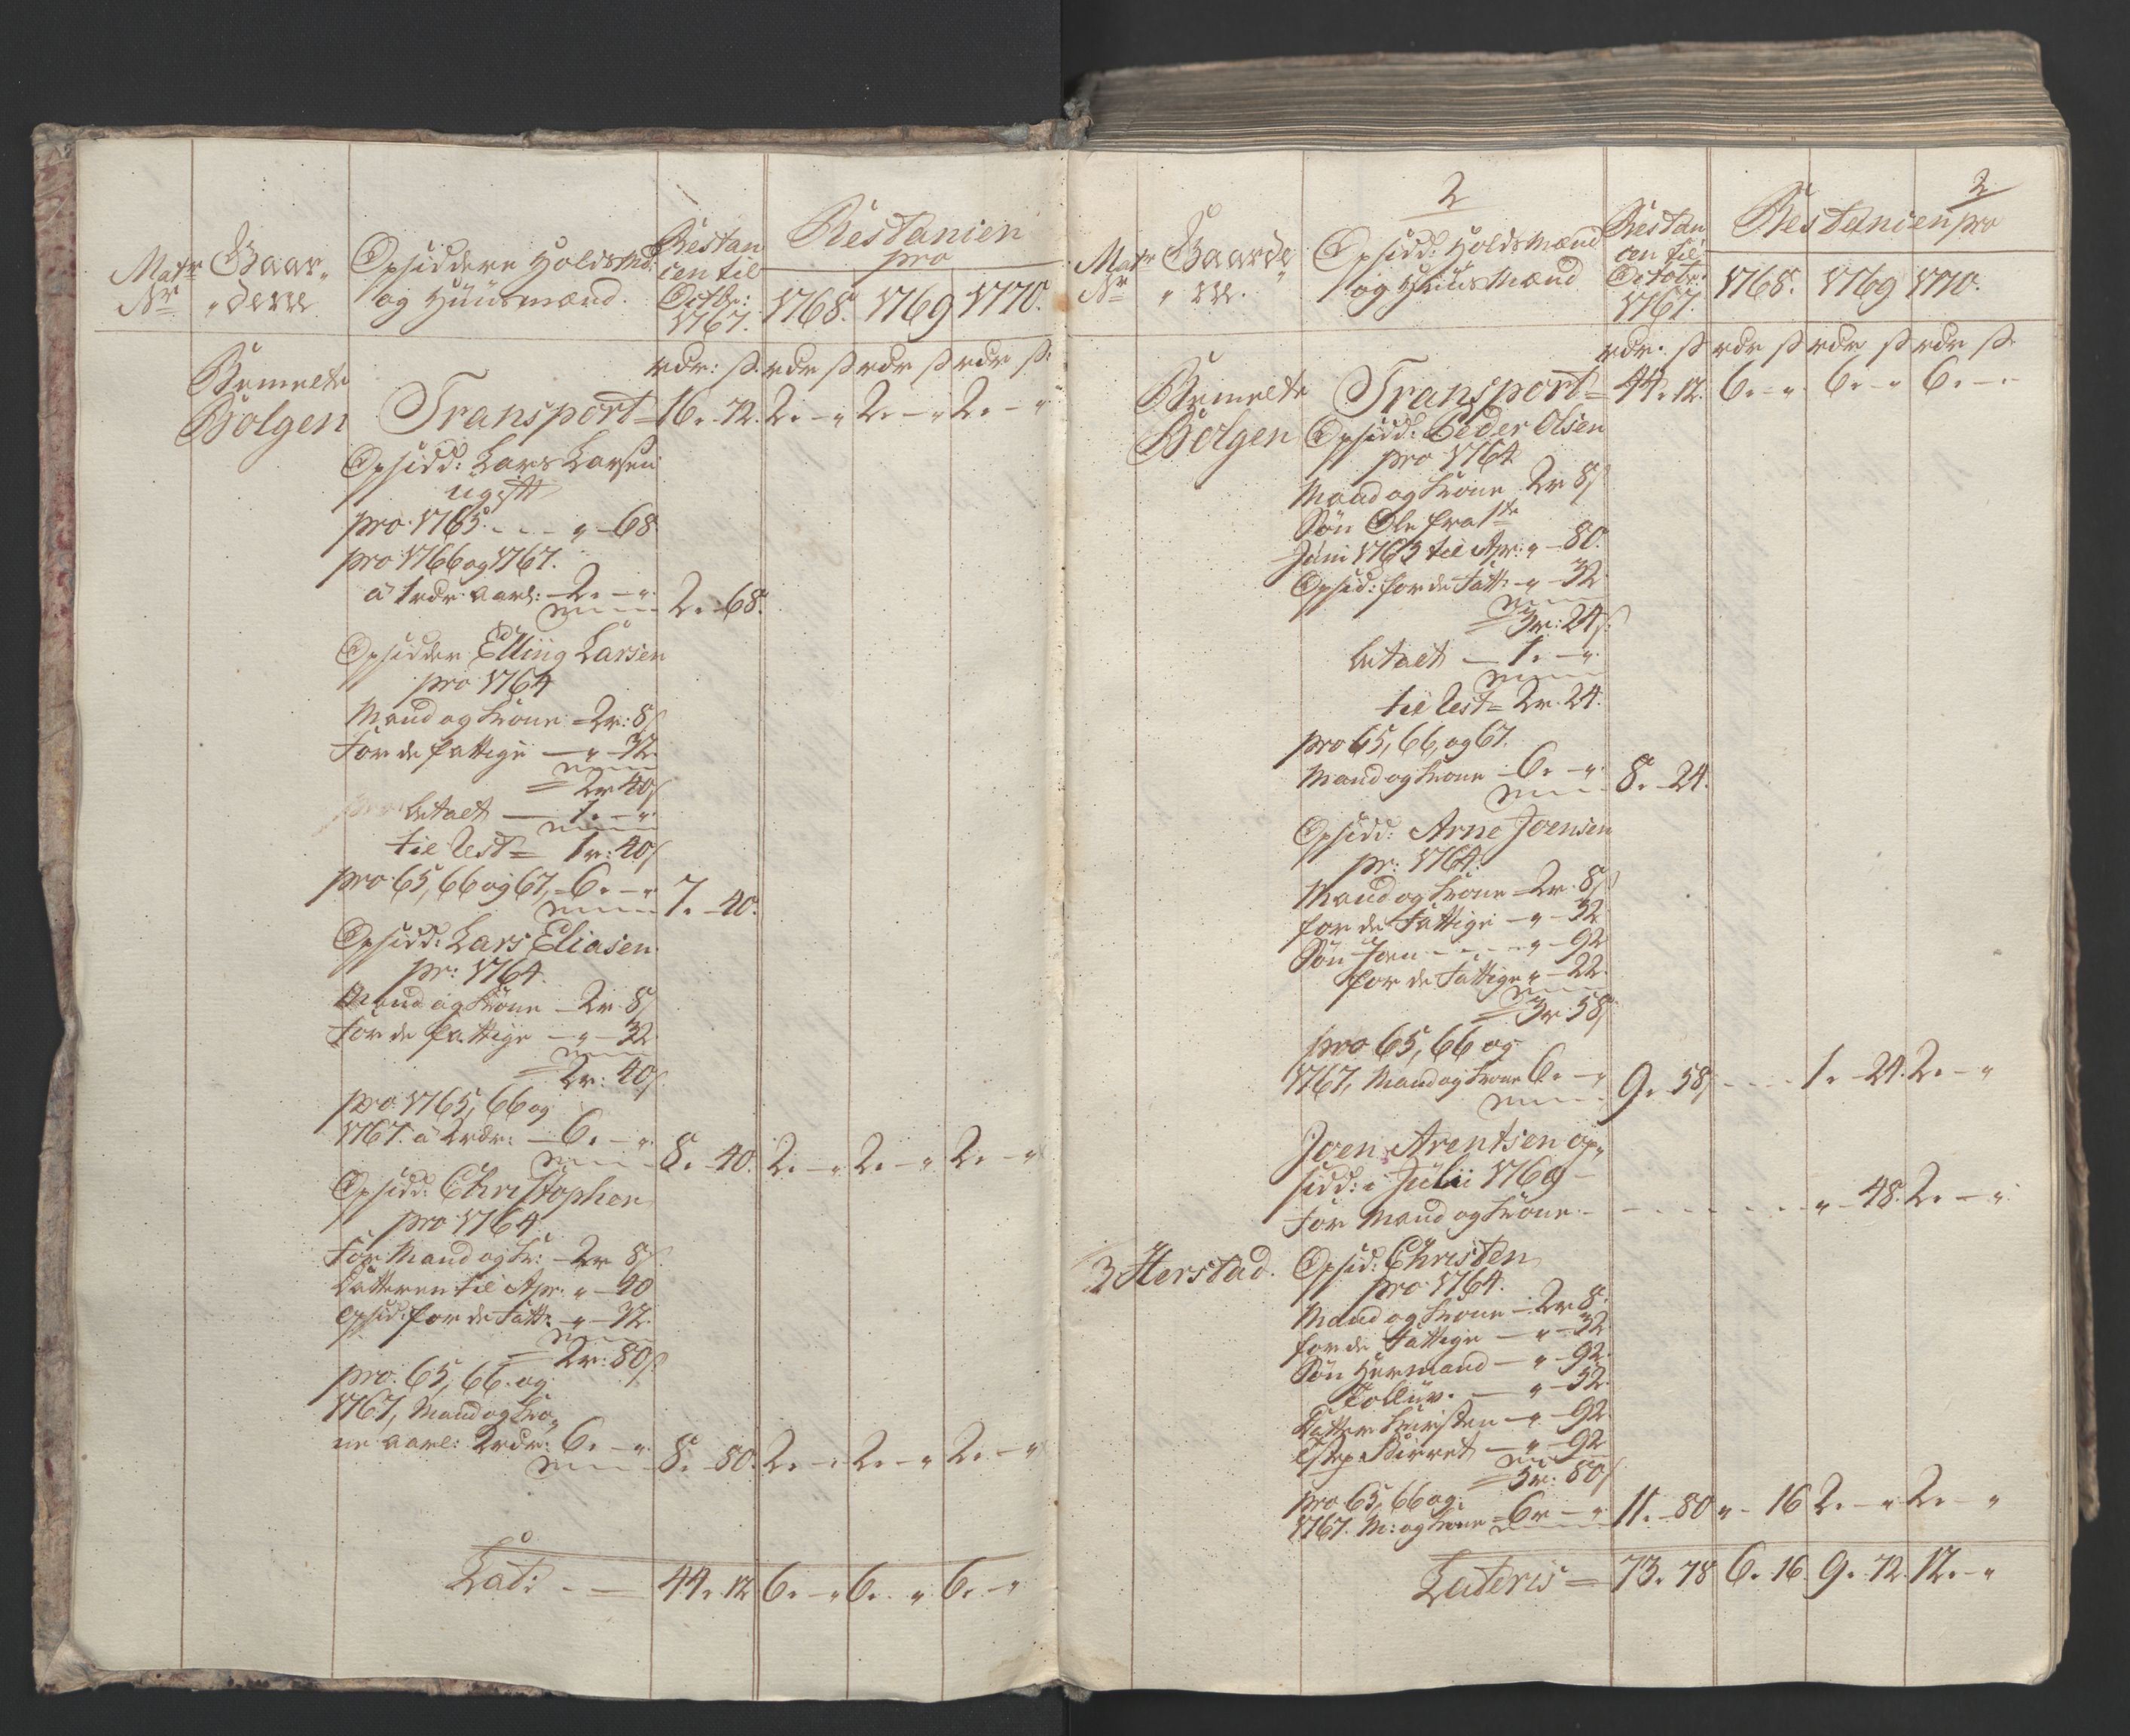 Matr Nr
Gaar„
„dene
Opsiddere Holdsmd:
og Huusmænd.
Restan
cen til
Octbr:
1767.
Restancen
pro
1768. 1769 1770.
rdr: s rdr s rdr s rdr s.
Bemelte
Bolgen Transport = 16. 72. 2. – „ 2. – „ 2. – „
Opsidd: Lars Larsen
ugift
pro 1765. – – „ – 68
pro 1766 og 1767.
a 1 rdr aarl: – 2. – „ 2. – 68.
Opsidder Elling Larsen
pro 1764
Mand og Kone = 2r: 8s
For de fattige – „ – 32.
= 2r 40s
betalt – 1. – „
til Rest = 1r: 40s
pro 65, 66 og 67, – 6. – „ 7. – 40.
Opsidd: Lars Eliasen
pr: 1764.
Mand og Kone – 2r 8s
For de fattige – „ – 32
= 2r: 40s.
pro 1765, 66 og
1767. a 2 rdr: – 6. – „ 8. – 40. 2. – „ 2. – „ 2. – „
Opsidd: Christopher
pro 1764.
For Mand og K: – 2r 8s
Datteren til Apr: „ – 40
Opsid: for de Fatt: – „ – 32.
= 2r: 80s
pro. 65, 66. og
1767, Mand og Ko„
ne aarl: 2 rdr: 6. – „ 8. – 80. 2. – „ 2. – „ 2. – „
Lat: – = 44. 12 6. – „ 6. „ 6. – „
2
2
Matr Nr
Gaarde
„ne.
Opsidd: Holdsmænd
og Huusmænd
Restan
cen til
Octobr:
1767.
Restancen pro
1768. 1769 1770.
rdr. s rdr s rdr s rdr s
Bemelte Transport = 44. 12. 6. – „ 6. – „ 6. – –
Bolgen Opsidd: Peder Olsen
pro 1764
Mand og Kone 2r 8s
Søn Ole fra 1ste
Juni 1763 til Apr: „ – 80.
Opsid: for de Fatt: – „ – 32
= 3r: 24s.
betalt – 1. – „
til Rest = 2r. 24.
pro 65, 66, og 67.
Mand og Kone – 6. – „ 8. – 24.
Opsidd: Arne Joensen
pr: 1764.
Mand og Kone = 2r. 8s
for de Fattige – „ – 32
Søn Joen – – – „ – 92
for de Fattige „ – 22.
= 3r 58s
pro 65, 66 og
1767, Mand og Kone 6. – „ 9. – 58s – – – 1. – 24. 2. – „
Joen Arentsen op„
sidd: i Julii 1769 –
For Mand og Kone – – – – – – „ – 48. 2. – „
3 Herstad. Opsid: Christen
pro 1764.
Mand og Kone – 2r 8.
for de Fattige – „ – 32
Søn Hermand – „ – 92.
– „ – 52.
Datter Kirsten – „ – 92
Birret – „ – 92
= 5r: 80s
pro 65, 66 og
1767. M: og Kone = 6r – „ 11. – 80 „ – 16 2. – „ 2. – „
Lateris = 73. 78 6. 16. 9. 72. 12. – „